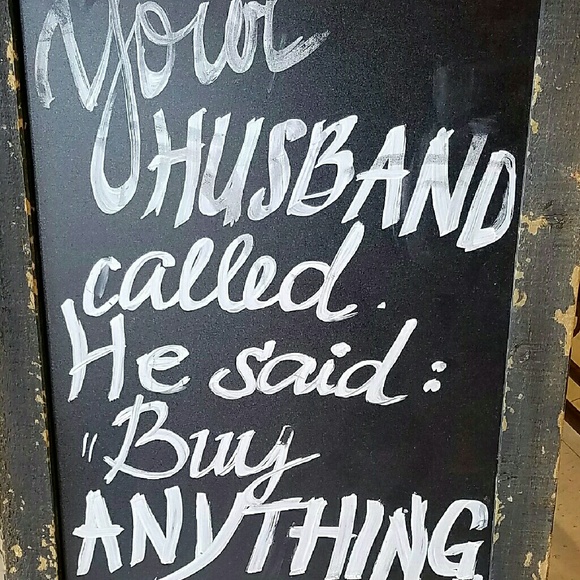 your
HUSBAND
called.
He said:
"Buy
ANYTHING